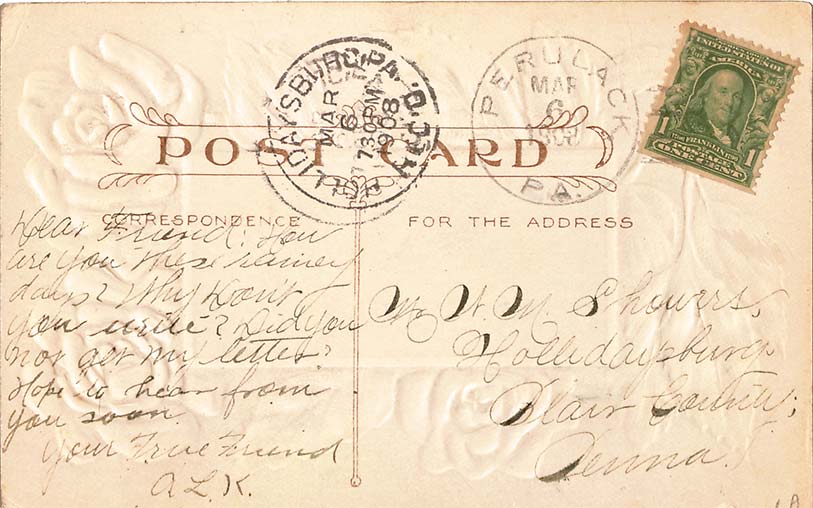 HOLLIDAYSBURG, PA. REC'D.
MAR
6
730PM
1908
PERULACK
MAR
6
1908
PA.
UNITED STATES OF AMERICA
1 1
FRANKLIN
POSTAGE
ONE CENT
POST CARD
CORRESPONDENCE
FOR THE ADDRESS
Dear Friend: How
are you these rainey
days? Why Don't
you write? Did you
not get my letter?
Hope to hear from
you soon.
Your True Friend
A.L.K.
Showers,
Hollidaysburg
Blair County,
Penna.